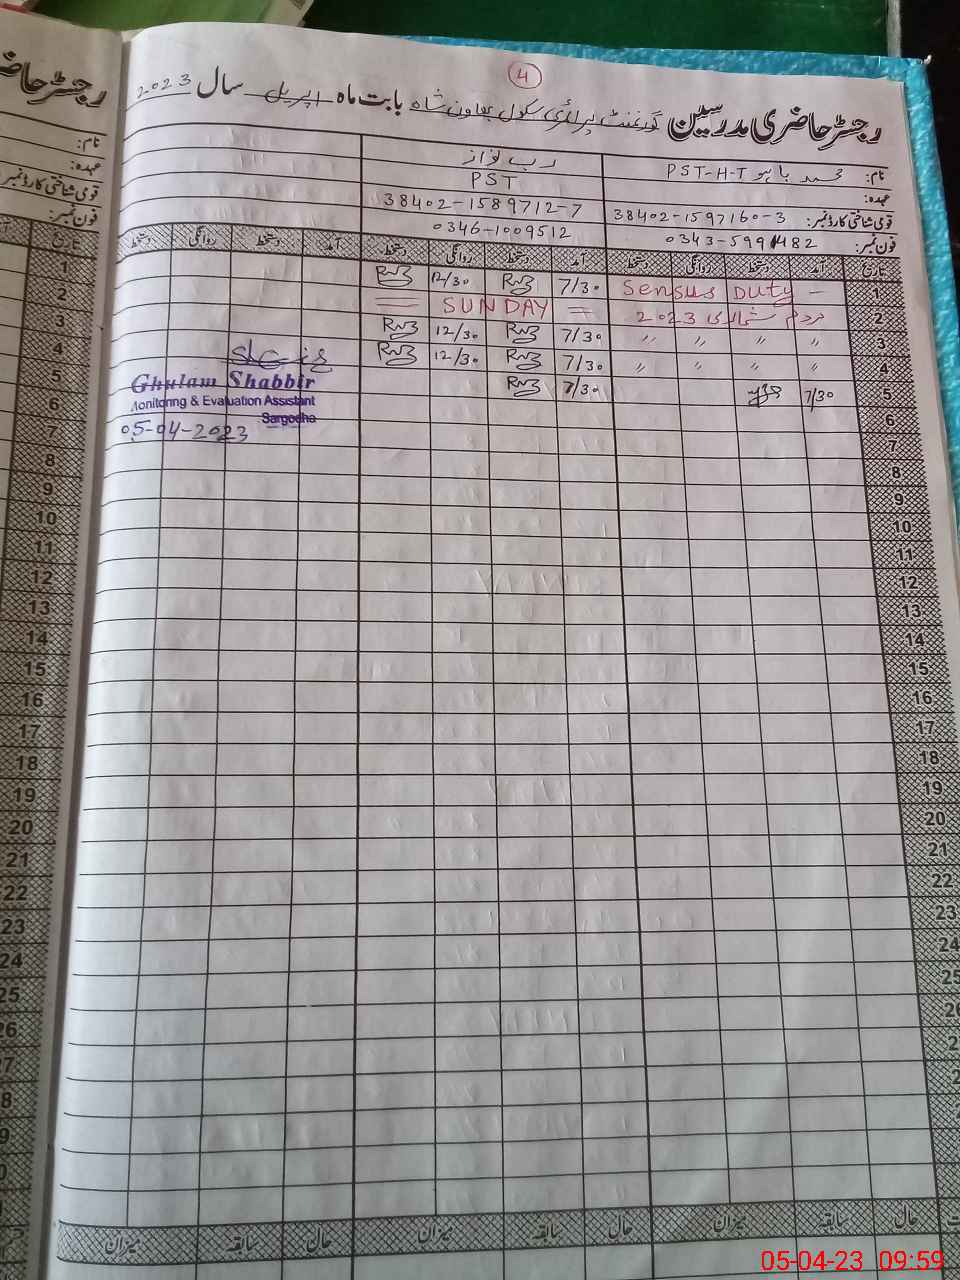 4
رجسٹر حاضری مدرسین گورنمنٹ پرائمری سکول بابت ماہ اپریل سال 2023
نام: محمد باہو PST-H-T رب نواز
عہدہ: PST
قومی شناختی کارڈ نمبر: 38402-1597160-3 38402-1589712-7
فون نمبر: 0343-5991482 0346-1009512
تاریخ آمد دستخط روانگی دستخط آمد دستخط روانگی دستخط آمد دستخط روانگی دستخط
1 Sensus Duty - 7/30 RN3 12/30 RN3
2 مردم شماری 2023 = SUNDAY =
3 〃 〃 〃 〃 7/30 RN3 12/30 RN3
4 〃 〃 〃 〃 7/30 RN3 12/30 RN3
5 7/30 7/30 RN3
Ghulam Shabbir
Monitoring & Evaluation Assistant
Sargodha
05-04-2023
6
7
8
9
10
11
12
13
14
15
16
17
18
19
20
21
22
23
24
25
حال سابقہ میزان حال سابقہ میزان حال سابقہ میزان
رجسٹر حاضر
نام:
عہدہ:
قومی شناختی کارڈ نمبر
فون نمبر:
تاریخ
1
2
3
4
5
6
7
8
9
10
11
12
13
14
15
16
17
18
19
20
21
22
23
24
25
26
05-04-23 09:59